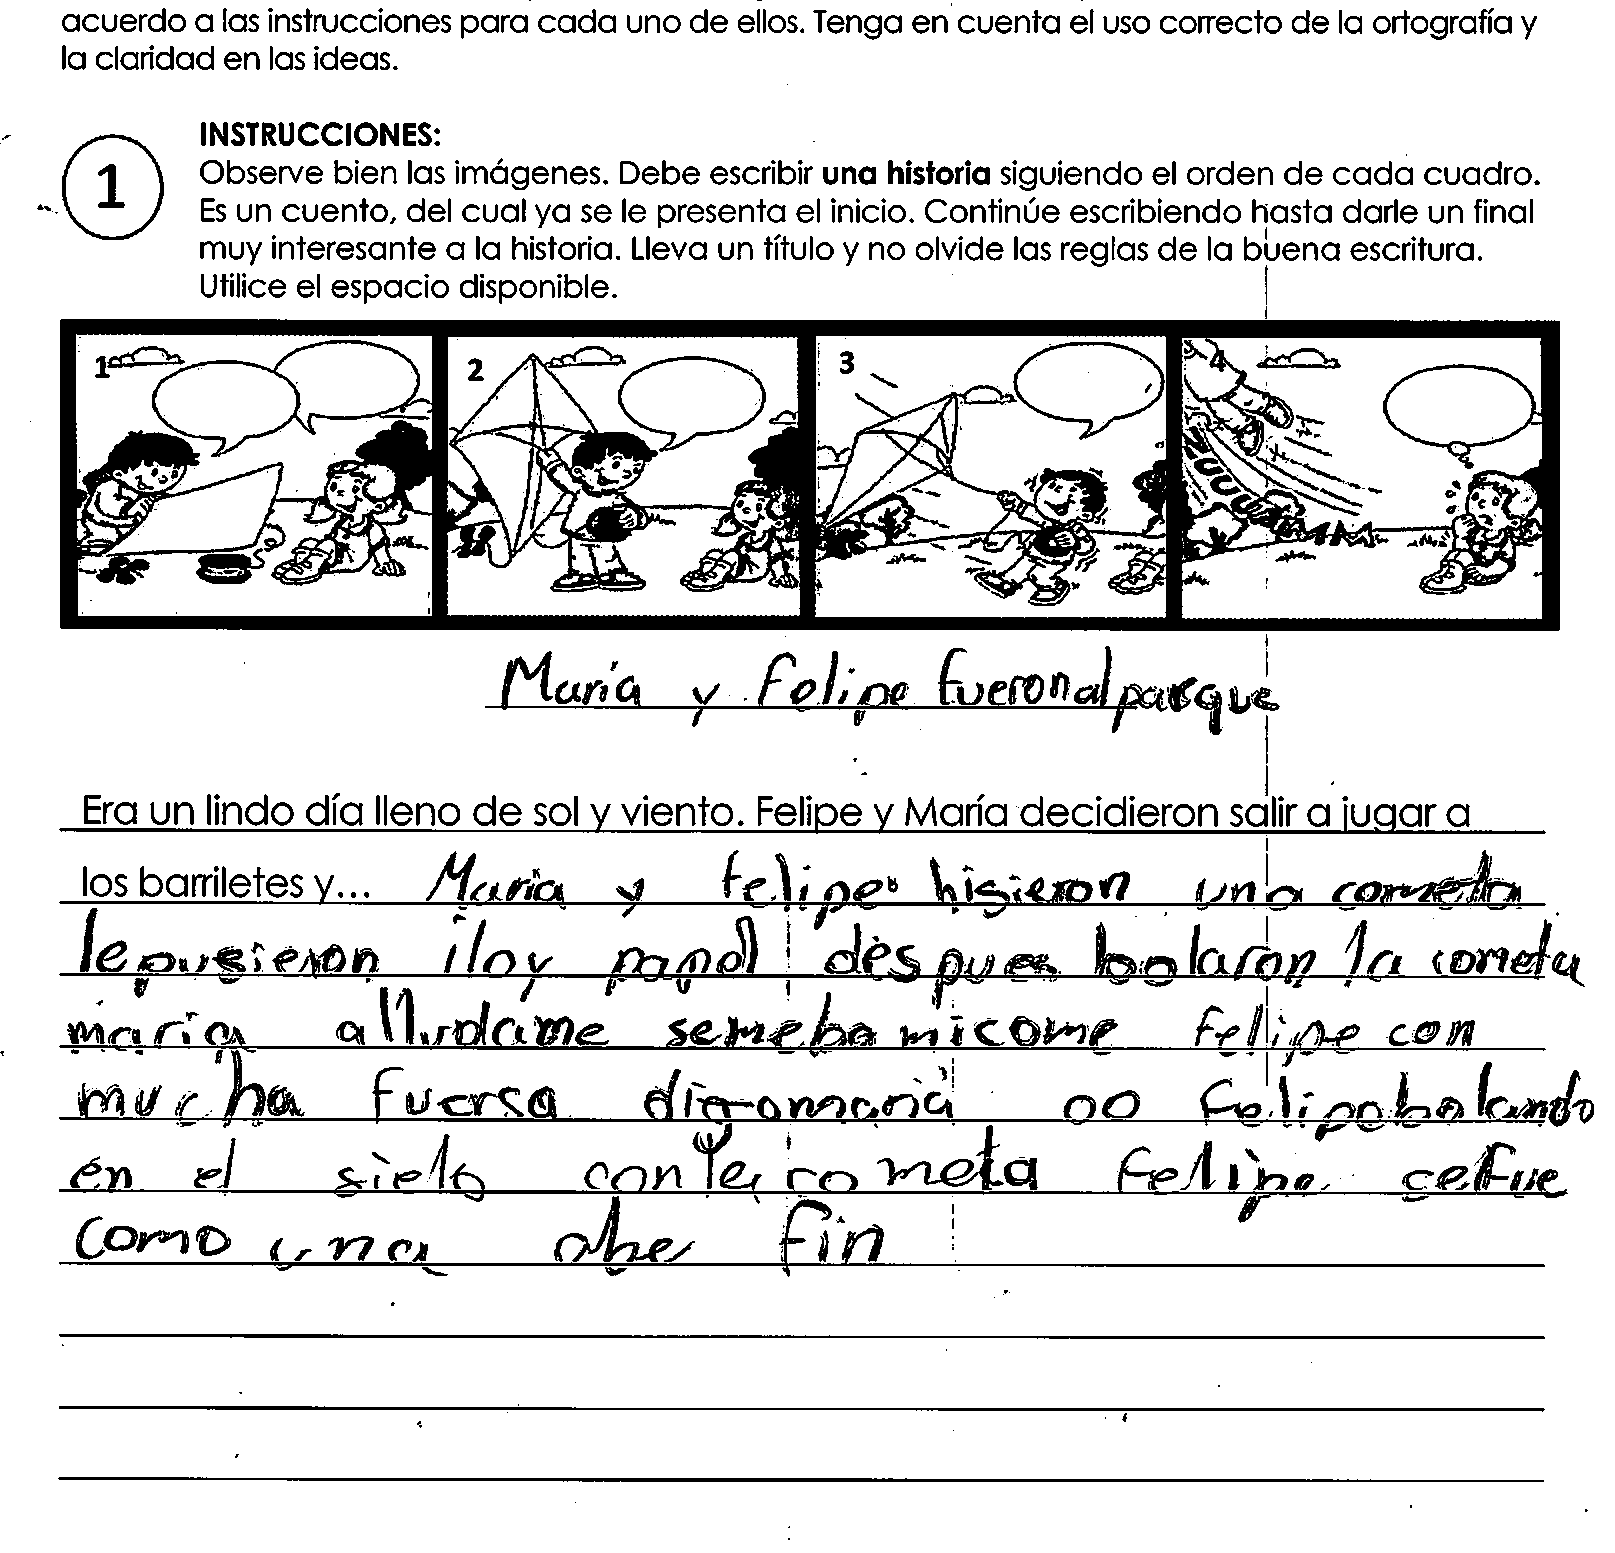 acuerdo a las instrucciones para cada uno de ellos. Tenga en cuenta el uso correcto de la ortografía y
la claridad en las ideas.
INSTRUCCIONES:
1
Observe bien las imágenes. Debe escribir una historia siguiendo el orden de cada cuadro.
Es un cuento, del cual ya se le presenta el inicio. Continúe escribiendo hasta darle un final
muy interesante a la historia. Lleva un título y no olvide las reglas de la buena escritura.
Utilice el espacio disponible.
1 2 3 4
María y Felipe fueron al parque
Era un lindo día lleno de sol y viento. Felipe y María decidieron salir a jugar a
los barriletes y... Maria y felipe hisieron una cometa
le pusieron ilo y papel despues bolaron la cometa
maria alludame semeba micome Felipe con
mucha fuersa maria oo Felipe bolando
en el sielo con la cometa felipe cefue
como una abe fin